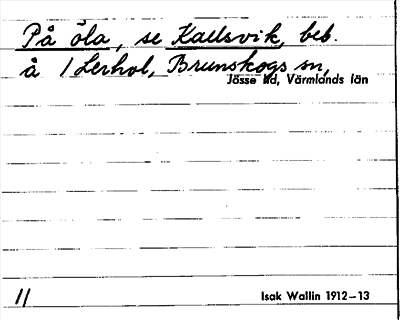 På öla, se Kallsvik, beb.
å 1 Lerhol, Brunskogs sn,
Jösse hd, Värmlands län
11
Isak Wallin 1912–13